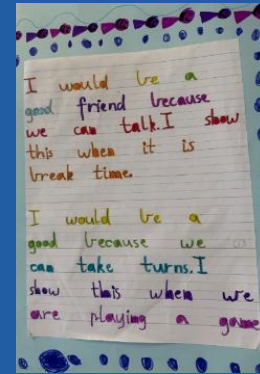 I would be a
good friend because
we can talk. I show
this when it is
break time.
I would be a
good because we
can take turns. I
show this when we
are playing a game